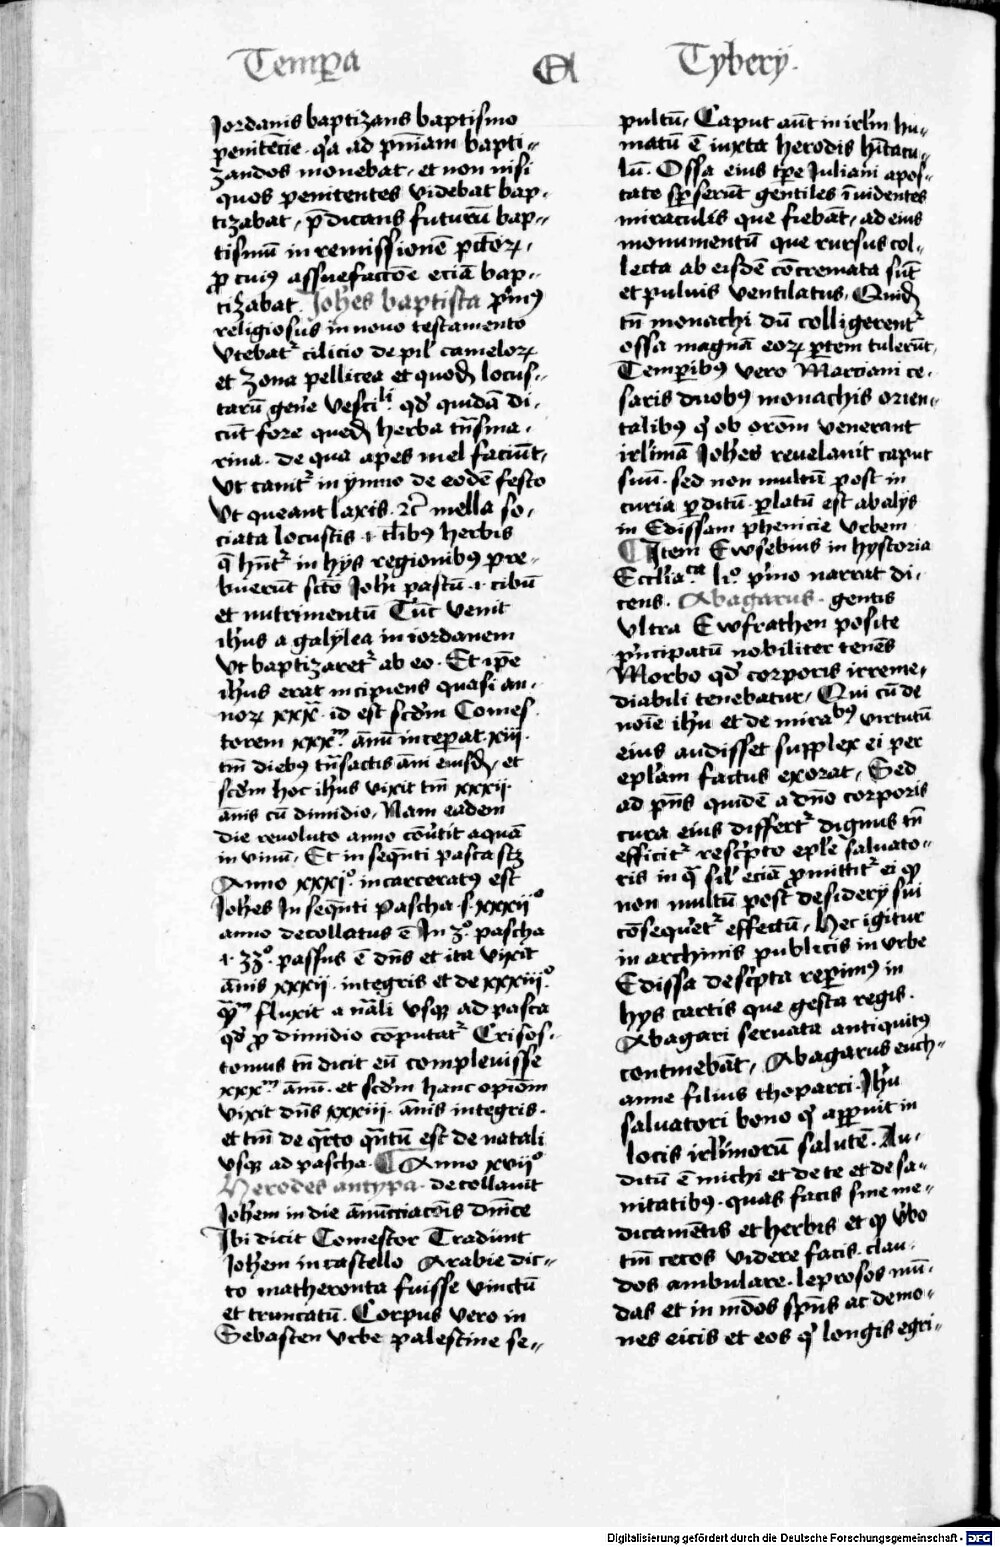 Temp̱a
A
Tybery.
Jordanis baptizans baptismo
penitēcie. q̓a ad pn̄iam bapti-
zandos monebat. et non nisi
quos penitentes videbat bap-
tizabat, p̄dicans futurū bap-
tismū in remissionē pctōꝝ,
ꝓ cuius assuefactōe eciā bap-
tizabat. Joh̓es baptista p̓mꝰ
religiosus in nouo testamento
vtebat᷑ cilicio de pil̓ cameloꝝ
et zona pellicea et quodꝫ locus-
tarū gen̓e vesciᷣ li. qd̓ quidā di-
cūt fore quedꝫ herba tn̄sma-
rina. de qua apes mel faciūt,
vt canit᷑ in ymno de eodē festo
vt queant laxis. ⁊c̄ mella so-
ciata locustis .i. tl̓ibꝰ herbis
q̄ hn̄t᷑ in hys regionibꝰ pre-
buerūt scō Joh̓i pastū .i. cibū
et nutrimentū Tūc venit
ih̓us a galylea in iordanem
vt baptizaret᷑ ab eo. Et ip̄e
ih̓us erat incipiens quasi an-
noꝝ xxx. id est scd̓m Comes
torem xxxm. ānū inceperat. xiii.
tm̄ diebꝰ tn̄sactis āni eiusdꝫ, et
scd̓m hoc ih̓us vixit tm̄ xxxii.
ānis cū dimidio, Nam eadem
die reuoluto anno cōu̓tit aquā
in vinū, Et in seqn̄ti pasca scꝫ
Anno xxxi°. incarceratꝰ est
Joh̓es In seqn̄ti pascha .s. xxxii°
anno decollatus ē In 3°. pascha
.i. 33°. passus ē dn̄s et ita vixit
ānis xxxii. integris et de xxxiii°.
qm̄ fluxit a nāli vsqꝫ ad pasca
qd̓ ꝓ dimidio cōputat᷑ Crisos-
tomus tn̄ dicit eū compleuisse
xxxm. ānū. et scd̓m hanc opiōm
vixit dn̄s xxxiii. ānis integris.
et tm̄ de q̓rto qn̄tū est de natali
vsqꝫ ad pascha. ¶ Anno xvii°
Herodes antypa. decollauit
Joh̓em in die ānūcciacōis dn̄ice
Ibi dicit Comestor Tradunt
Joh̓em in castello Arabie dic-
to matheronta fuisse vinctū
et truncatū. Corpus vero in
Sebasten vrbe palestine se-
pultū, Caput aūt in irl̓m hu-
matū ē iuxta herodis hītacu-
lū. Ossa eius tp̄e Juliani apos-
tate sp̱serūt gentiles ī uidentes
miraculis que fiebāt, ad eius
monumentū que rursus col-
lecta ab eisdē cōcremata sūt
et puluis ventilatus, Quidꝫ
tn̄ monachi dū colligerent᷑
ossa magnā eoꝝ ꝑtem tulerūt,
Temꝑibꝰ vero Marciani ce-
saris duobꝰ monachis orien-
talibꝰ q̓ ob orōm venerant
irl̓imā Joh̓es reuelauit caput
suū. sed non multū post in
curia ꝑditū. ꝑlatū est ab alys
in Edissam phenicie vrbem
¶ Item Ewsebius in hystoria
Eccl̓iaᷣ ca li°. p̓mo narrat di-
cens. Abagarus. gentis
vltra Ewfrathen posite
p̓ncipatū nobiliter tenēs
Morbo qd̓ corporis irreme-
diabili tenebatur, Qui cū de
noīe ih̓u et de mirabꝰ virtutū
eius audisset supplex ei per
epl̓am factus exorat, Sed
ad pn̄s quidē a dn̄o corporis
cura eius differt᷑ dignus tn̄
efficit᷑ rescp̓to epl̓e saluato-
ris in q̄ sil̓ eciā ꝓmittit᷑ ei qꝫ
non multū post desidery sui
cōsequet᷑ effectū, Hec igitur
in archiuis publicis in vrbe
Edissa descp̓ta reperimꝰ in
hys cartis que gesta regis.
Abagari seruata antiquitꝰ
continebāt, Abagarus euch-
anne filius thoparci. Jh̓u
saluatori bono q̓ apparuit in
locis irl̓imorū salutē. Au-
ditū ē michi et de te et de sa-
nitatibꝰ. quas facis sine me-
dicamētis et herbis et qꝫ v̓bo
tm̄ cecos videre facis. clau-
dos ambulare. leprosos mū-
das et inmūdos spūs ac demo-
nes eicis et eos q̓ longis egri-
Digitalisierung gefördert durch die Deutsche Forschungsgemeinschaft - DFG